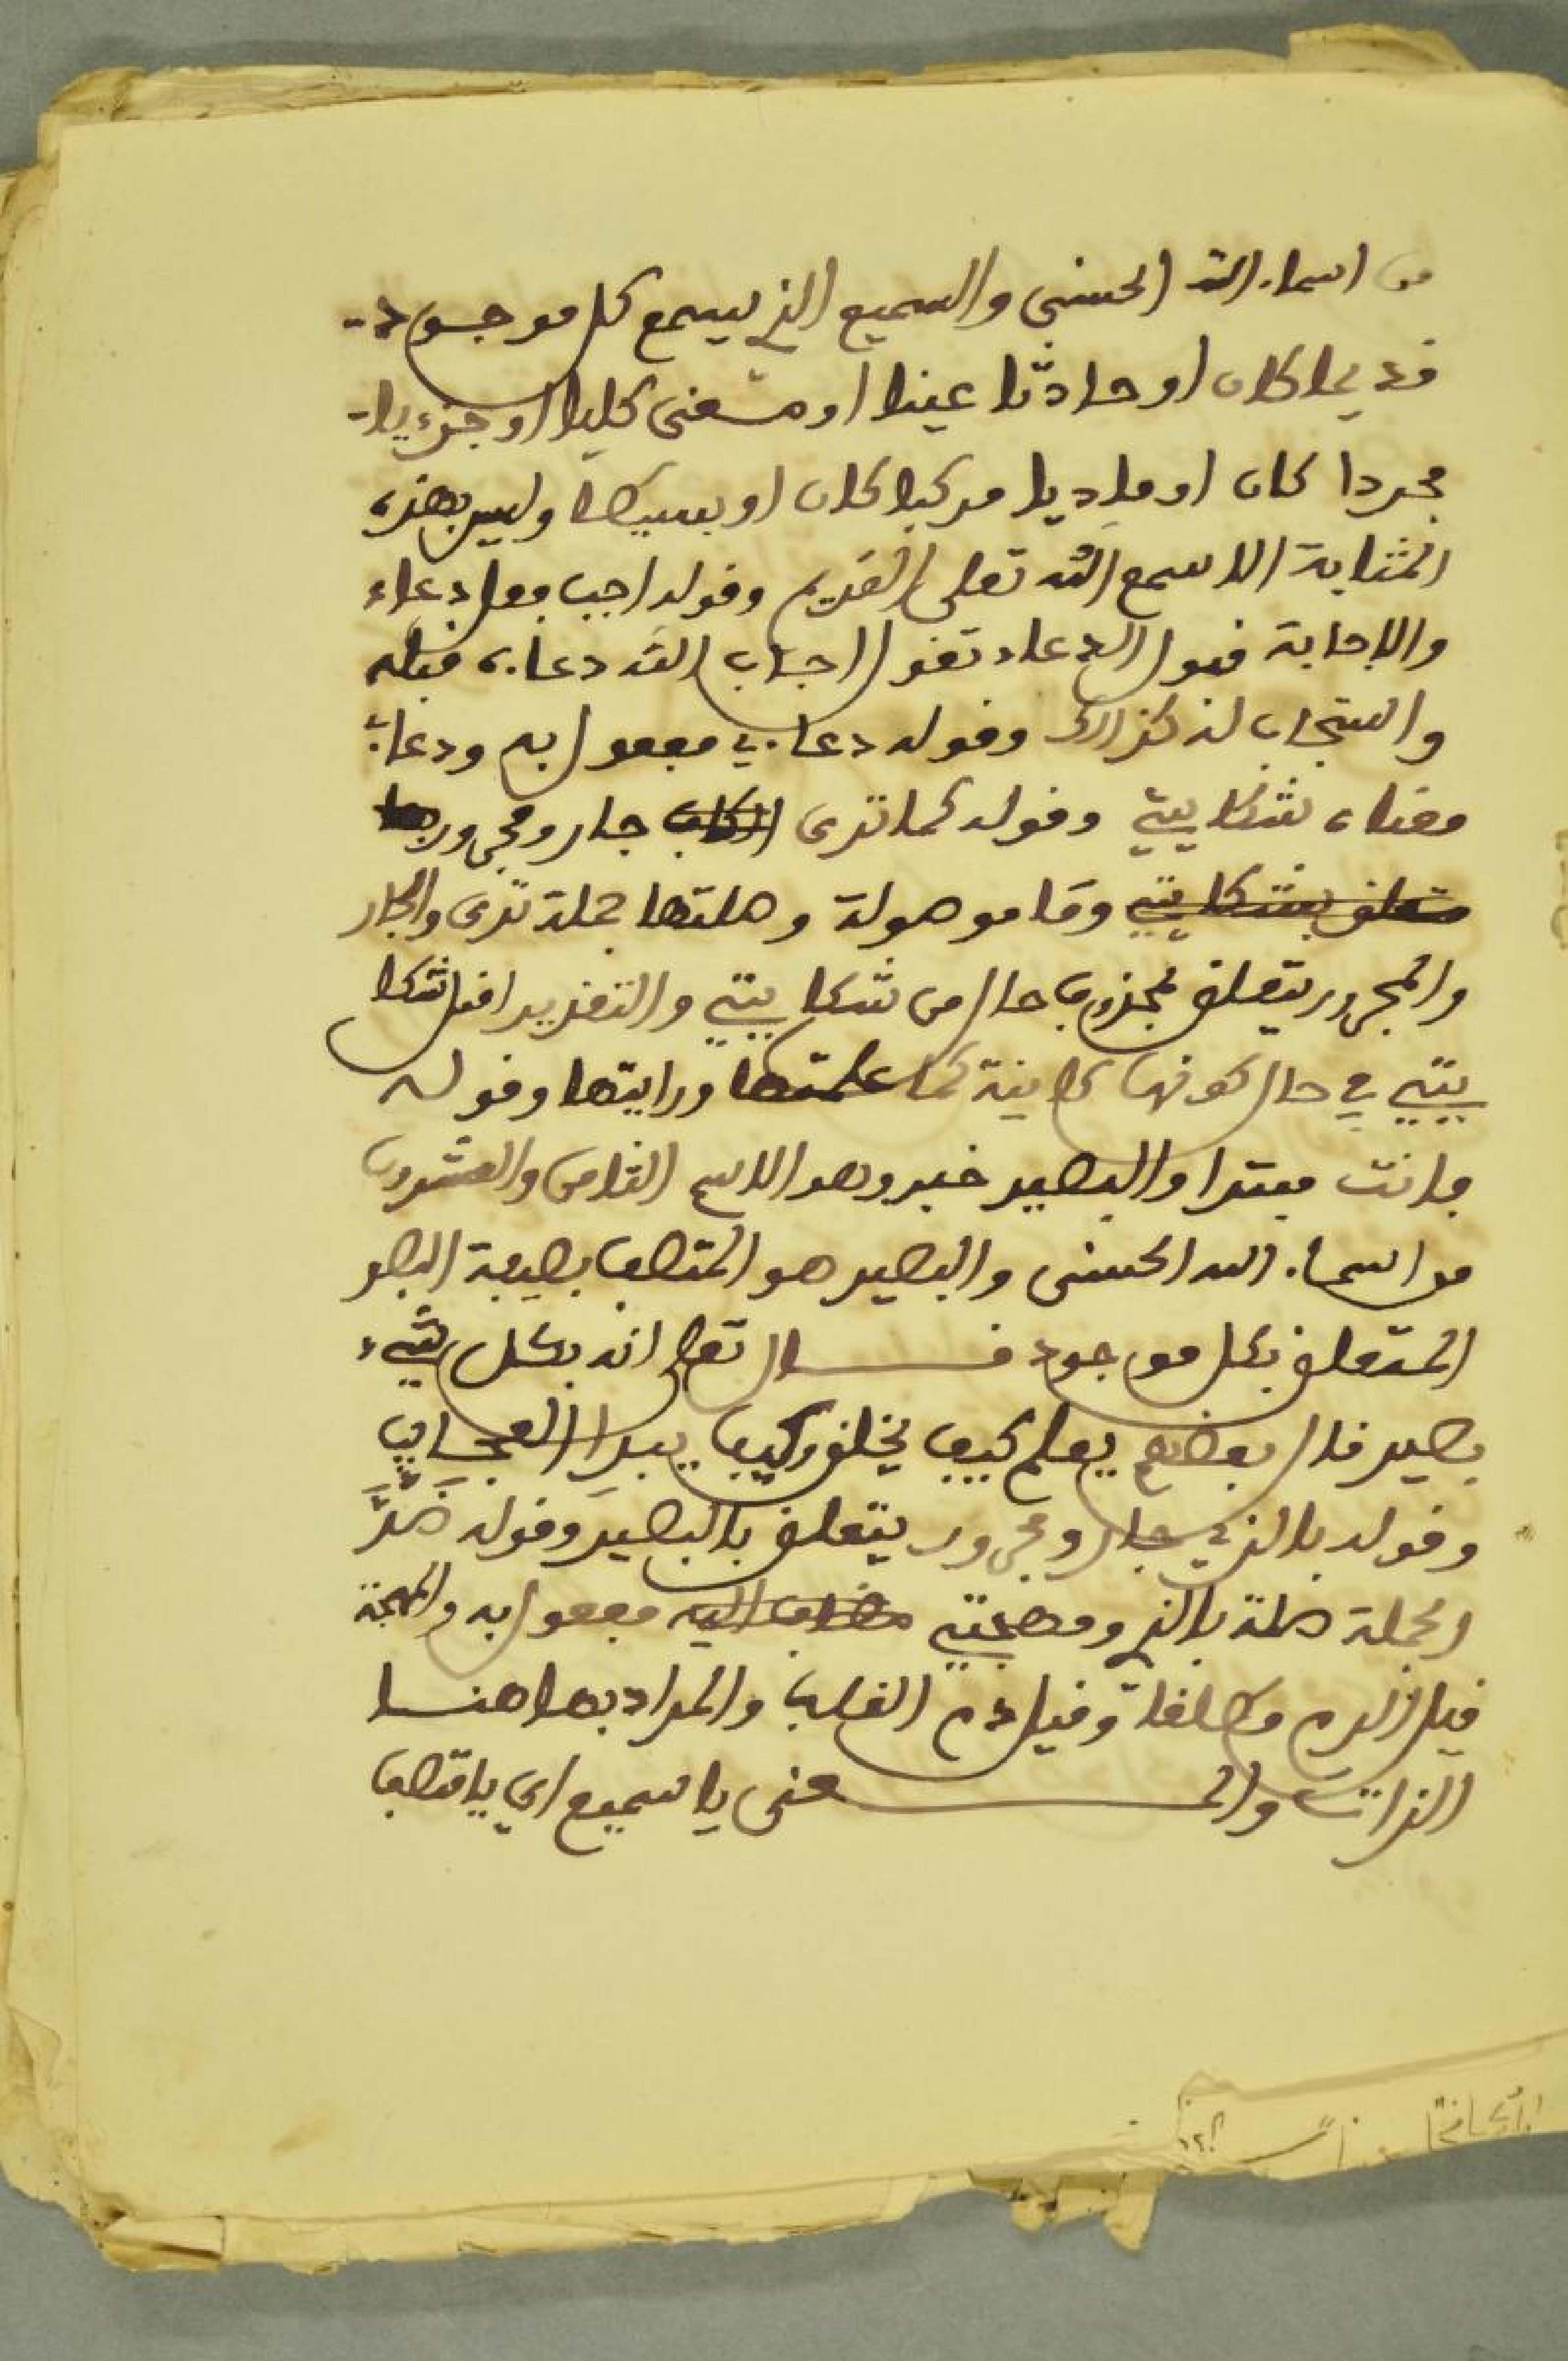 من اسماء الله الحسنى والسميع الذي يسمع كل موجود
قديما كان او حادثا عينا او معنى كليا او جزءيا
مجردا كان او ماديا مركبا كان او بسيطا وليس بهذه
المثابة الا سمع الله تعلى القديم وقوله اجب فعل دعاء
والاجابة قبول الدعاء تقول اجاب الله دعاءه قبله
واستجاب له كذالك وقوله دعاءي مفعول به ودعاءي
معناه شكايتي وقوله كما ترى الكاف جار ومجرور
متعلق بشكايتي وما موصولة وصلتها جملة ترى والجار
والمجرور يتعلق بمحذوف حال من شكايتي والتقدير اقبل شكا
يتي في حال كونها كاينة كما علمتها ورايتها وقوله
فانت مبتدا والبصير خبر وهو الاسم الثامن والعشرون
من اسماء الله الحسنى والبصير هو المتصف بصفة البصر
المتعلق بكل موجود قال تعلى انه بكل شيء
بصير قال بعضهم يعلم كيف يخلق وكيف يبدا العجايب
وقوله بالذي جار ومجرور يتعلق بالبصير وقوله ضر
الجملة صلة بالذي ومهجتي مضاف اليه مفعول به والمهجة
قيل الدم مطلقا وقيل دم القلب والمراد بها هنا
الذات والمعنى يا سميع اي يا متصف